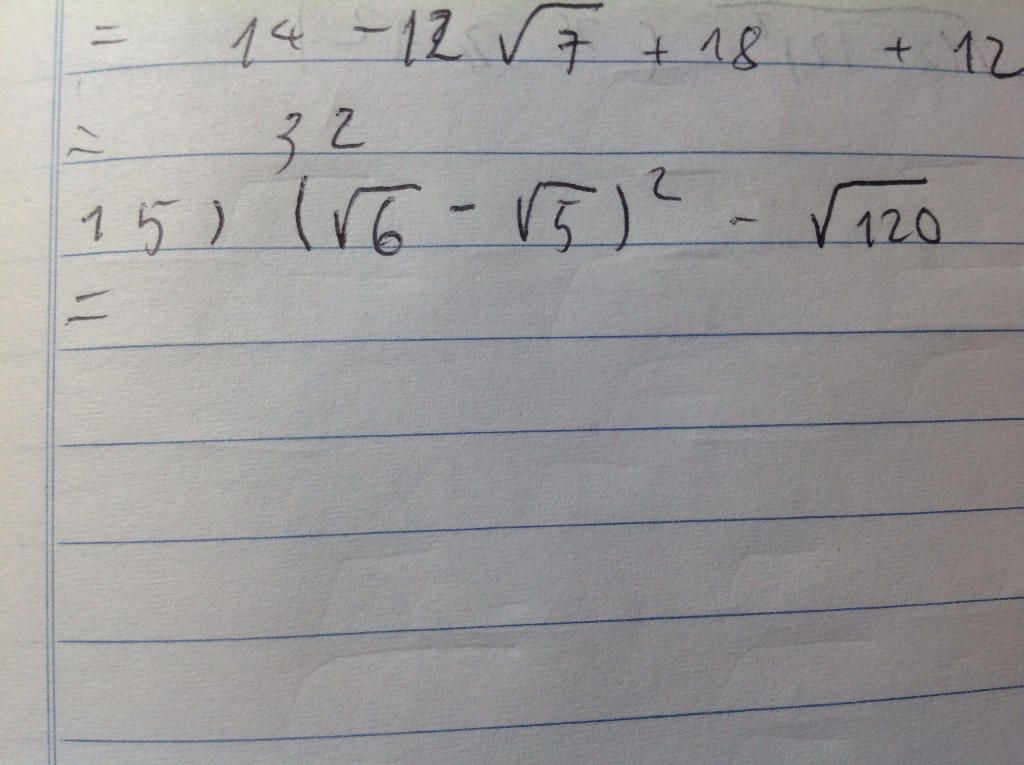 = 14 - 12 √7 + 18 + 12
= 32
15) (√6 - √5)² - √120
=